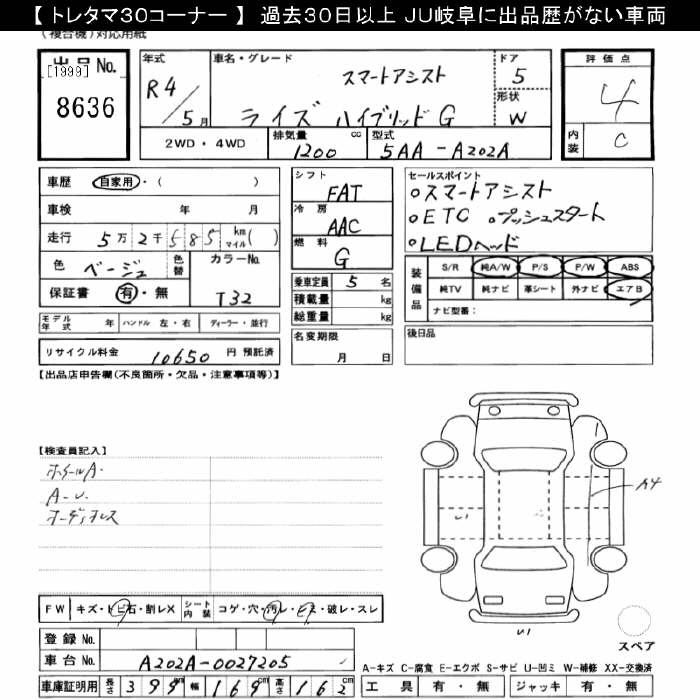 【トレタマ30コーナー】 過去30日以上 JU岐阜に出品歴がない車両
(複合機)対応用紙
出品No.
[1999]
8636
年式
R4/5月
車名・グレード
スマートアシスト
ライズ ハイブリッドG
ドア
5
形状
W
2WD・4WD
排気量
1200 cc
型式
5AA-A202A
評価点
4
内装
C
車歴 自家用・( )
車検 年 月
走行 5万2千585 km マイル( )
色 ベージュ 色替
カラーNo.
T32
保証書 有・無
シフト
FAT
冷房
AAC
燃料
G
乗車定員 5名
積載量 kg
総重量 kg
名変期限
月 日
セールスポイント
○スマートアシスト
○ETC ○プッシュスタート
○LEDヘッド
装備品
S/R 純A/W P/S P/W ABS
純TV 純ナビ 革シート 外ナビ エアB
ナビ型番:
後日品
モデル年式 年 ハンドル 左・右 ディーラー・並行
リサイクル料金 10650 円 預託済
【出品店申告欄(不良箇所・欠品・注意事項等)】
【検査員記入】
ホイールA.
A-U.
オーディオレス
A4
U1
U1
FW キズ・トビ石・割レX
シート内装 コゲ・穴・汚レ・ビス・破レ・スレ
登録No.
車台No. A202A-0027205
スペア
A-キズ C-腐食 E-エクボ S-サビ U-凹ミ W-補修 XX-交換済
車庫証明用 長さ 399cm 幅 169cm 高さ 162cm
工具 有・無 ジャッキ 有・無